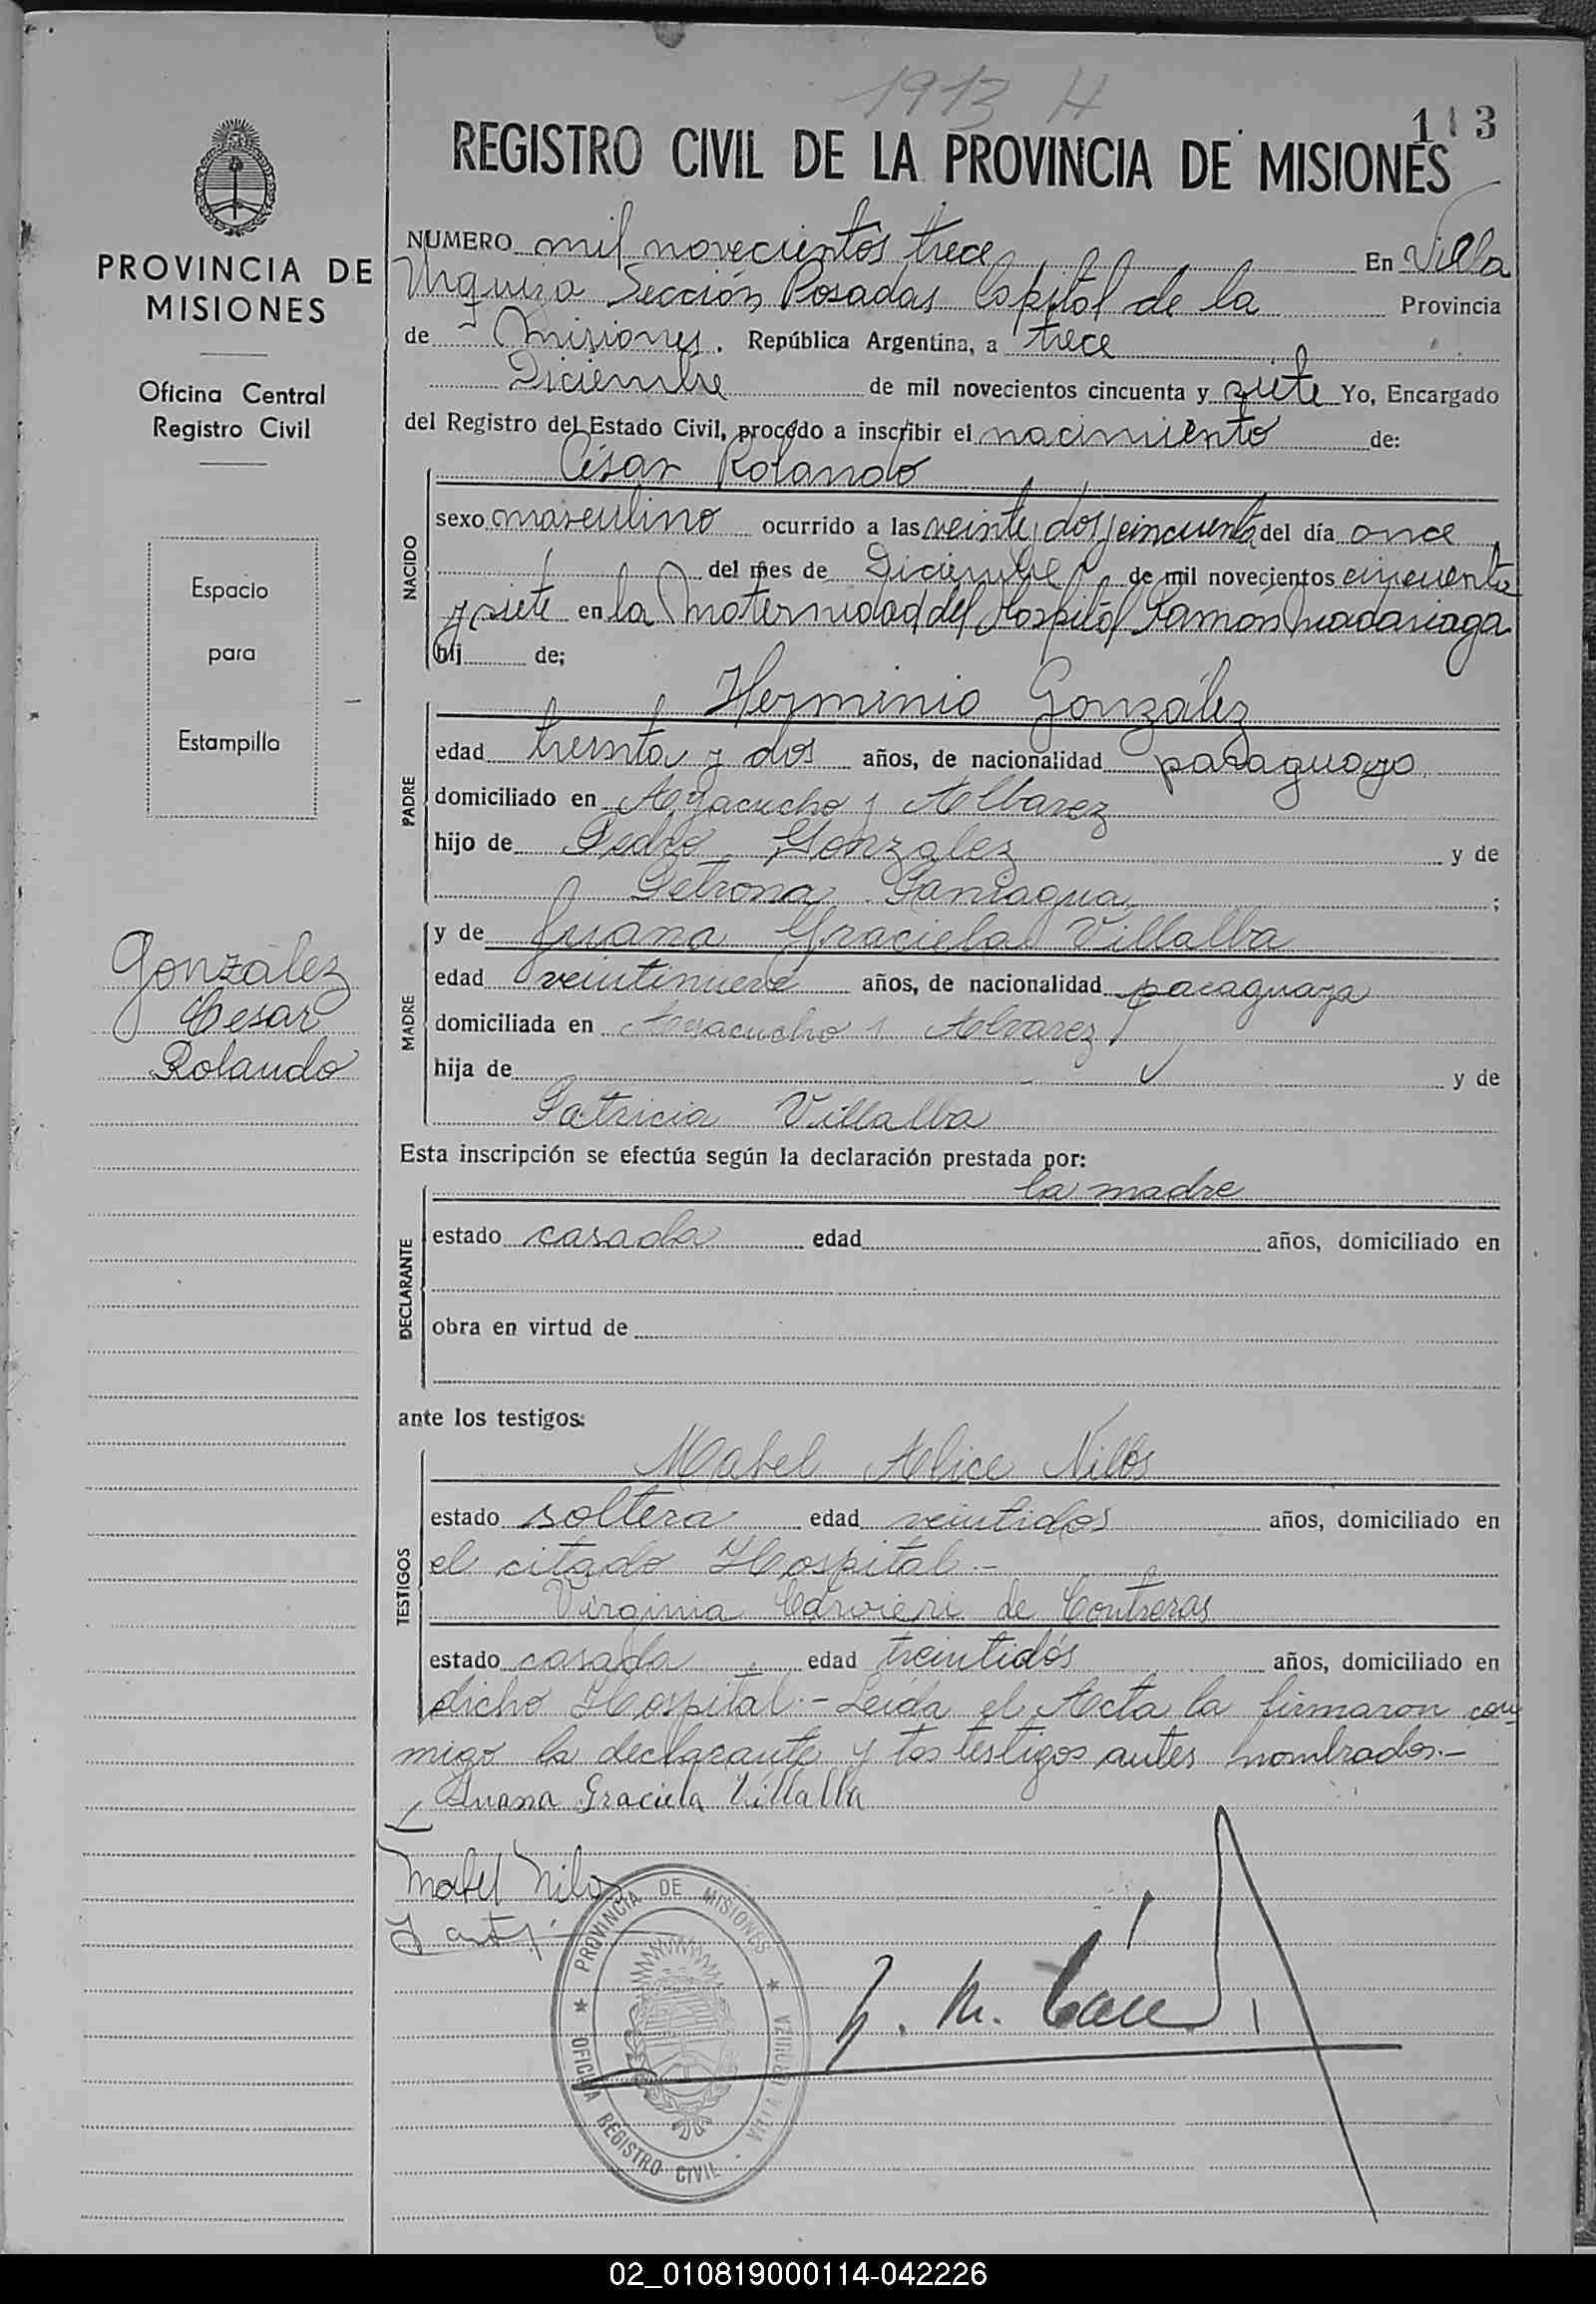 1913 H
113
REGISTRO CIVIL DE LA PROVINCIA DE MISIONES
PROVINCIA DE
MISIONES
Oficina Central
Registro Civil
Espacio
para
Estampilla
González
Cesar
Rolando
NUMERO mil novecientos trece En Villa
Urquiza Sección Posadas Capital de la Provincia
de Misiones. República Argentina, a trece
Diciembre de mil novecientos cincuenta y siete Yo, Encargado
del Registro del Estado Civil, procedo a inscribir el nacimiento de:
César Rolando
NACIDO
sexo masculino ocurrido a las veinte y dos y cincuenta del día once
del mes de Diciembre de mil novecientos cincuenta
y siete en la Maternidad del Hospital Ramón Madariaga
hij de;
Herminio González
PADRE
edad treinta y dos años, de nacionalidad paraguayo
domiciliado en Ayacucho y Albarez
hijo de Pedro Gonzalez y de
Petrona Paniagua ;
MADRE
y de Juana Graciela Villalba
edad veintinueve años, de nacionalidad paraguaya
domiciliada en Ayacucho y Alvarez
hija de y de
Patricia Villalba
Esta inscripción se efectúa según la declaración prestada por:
la madre
DECLARANTE
estado casada edad años, domiciliado en
obra en virtud de
ante los testigos:
Mabel Alice Nilos
TESTIGOS
estado soltera edad veintidos años, domiciliado en
el citado Hospital.-
Virginia de Contreras
estado casada edad treintidós años, domiciliado en
dicho Hospital.- Leída el Acta la firmaron con
migo la declarante y los testigos antes nombrados.-
Juana Graciela Villalba
Mabel Nilos
PROVINCIA DE MISIONES
OFICINA REGISTRO CIVIL - VILLA URQUIZA
02_010819000114-042226